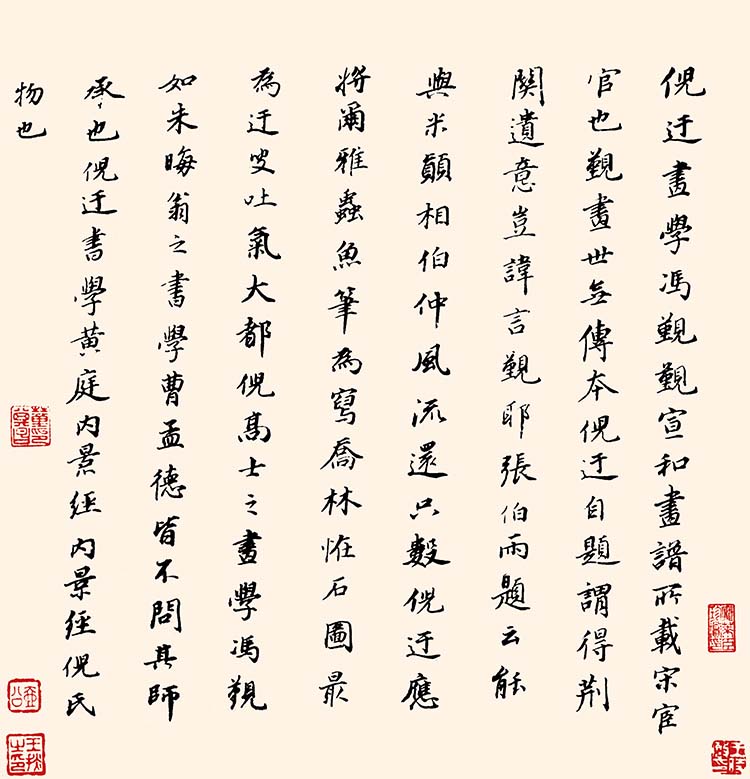 倪迂畫學馮覲覲宣和畫譜所載宋宦
官也覲畫世無傳本倪迂自題謂得荊
關遺意豈諱言覲耶張伯雨題云能
與米顛相伯仲風流還只數倪迂應
將爾雅蟲魚筆為寫喬林恠石圖最
為迂叟吐氣大都倪高士之畫學馮覲
如朱晦翁之書學曹孟德皆不問其師
承也倪迂書學黃庭內景經內景經倪氏
物也